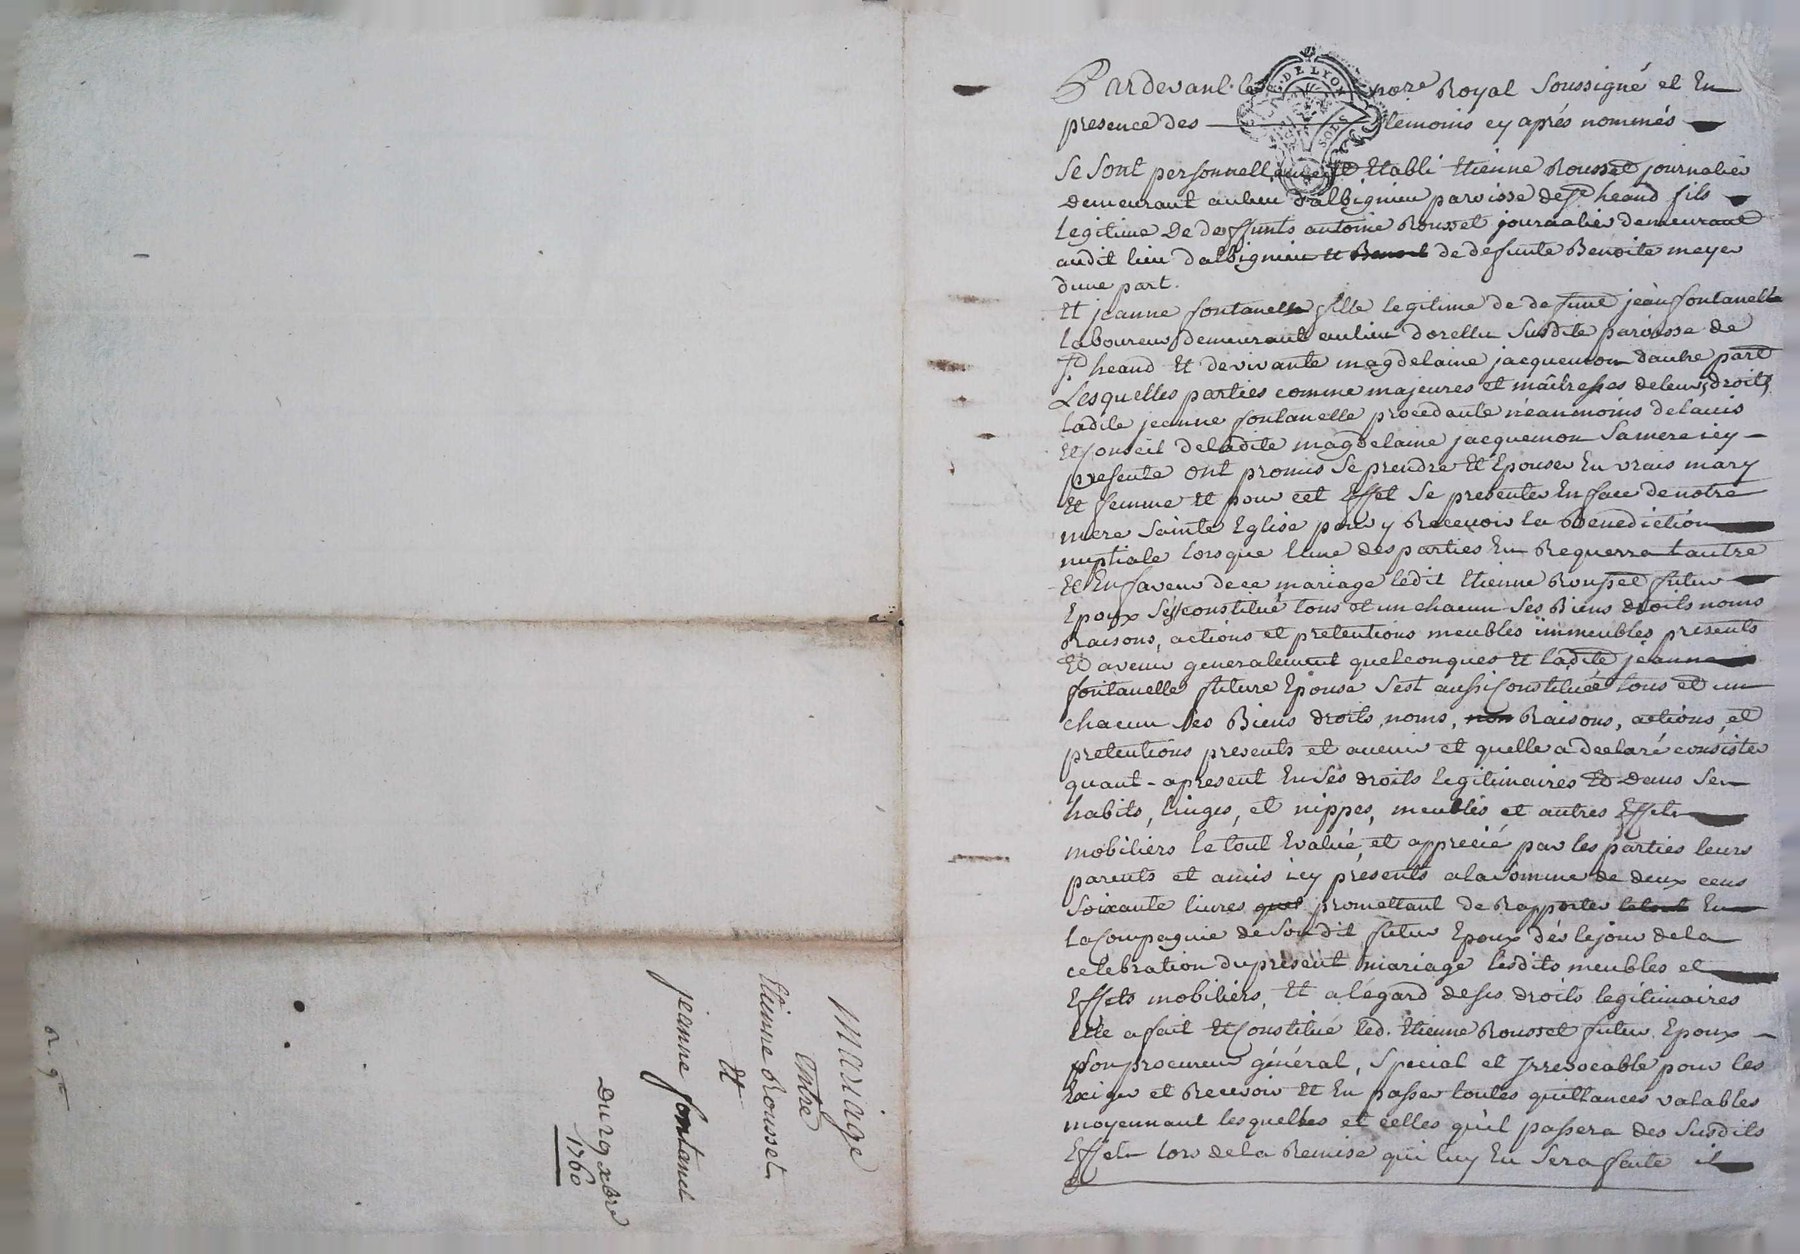 Mariage
Entre
Etienne Rousset
Et
jeanne fontanel
Du 29 xbre
1760
Pardevant le no.re Royal Soussigné et En
presence des temoins cy aprés nommés
Se Sont personnellement Etabli Etienne Rousset journalier
demeurant au lieu d'albignieu paroisse de St heand fils
legitime De deffunts antoine Rousset journalier demeurant
audit lieu dalbignieu et Benoit de defunte Benoite meyer
dune part.
Et jeanne fontanelle fille legitime de defunt jean fontanelle
laboureur demeurant au lieu dorellu Susdite paroisse de
St heand Et de vivante magdelaine jacquemon dautre part
Lesquelles parties comme majeures et maitresses de leurs droits
ladite jeanne fontanelle procedante néanmoins de lavis
Et Conseil de ladite magdelaine jacquemon Sa mere icy
presente ont promis Se prendre Et Epouser En vrais mary
Et femme Et pour cet Effet Se presenter En face de notre
mere Sainte Eglise pour y Recevoir la Benediction
nuptiale lorsque lune des parties En Requerra lautre
Et En faveur de ce mariage ledit Etienne Rousset futur
Epoux S'est constitué tous et un chacun Ses Biens droits noms
Raisons, actions et pretentions meubles immeubles presents
Et avenir generalement quelconques Et ladite jeanne
fontanelle future Epouse S'est aussi Constituée tous et un
chacun Ses Biens droits, noms, non Raisons, actions, et
pretentions presents et avenir et quelle a declaré consister
quant-apresent En Ses droits legitimaires Et Dans Ses
habits, linges, et nippes, meubles et autres Effets
mobiliers le tout Evalué, et apprécié par les parties leurs
parents et amis icy presents a la Somme de deux cens
Soixante livres quel promettant de Rapporter le tout En
la Compagnie de Son dit futur Epoux dés le jour de la
celebration du present mariage lesdits meubles et
Effets mobiliers, Et a l'egard de ses droits legitimaires
elle a fait Et Constitué led. Etienne Rousset futur Epoux
Son procureur général, Special et Irrevocable pour les
Exiger et Recevoir Et En passer toutes quittances valables
moyennant lesquelles et celles qu'il passera des Susdits
Effets lors de la Remise qui luy En Sera faite il